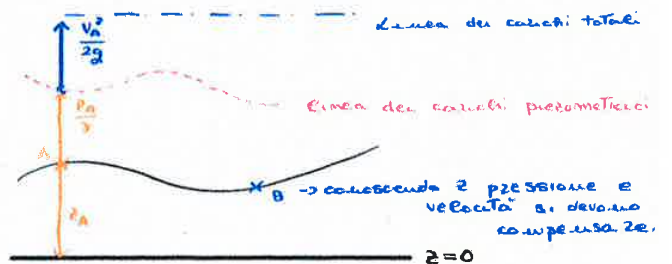 Linea dei carichi totali
V_A²/2g
P_A/γ
Linea dei carichi piezometrici
A
B → conoscendo z pressione e
velocità si devono
compensare.
z_A
z=0